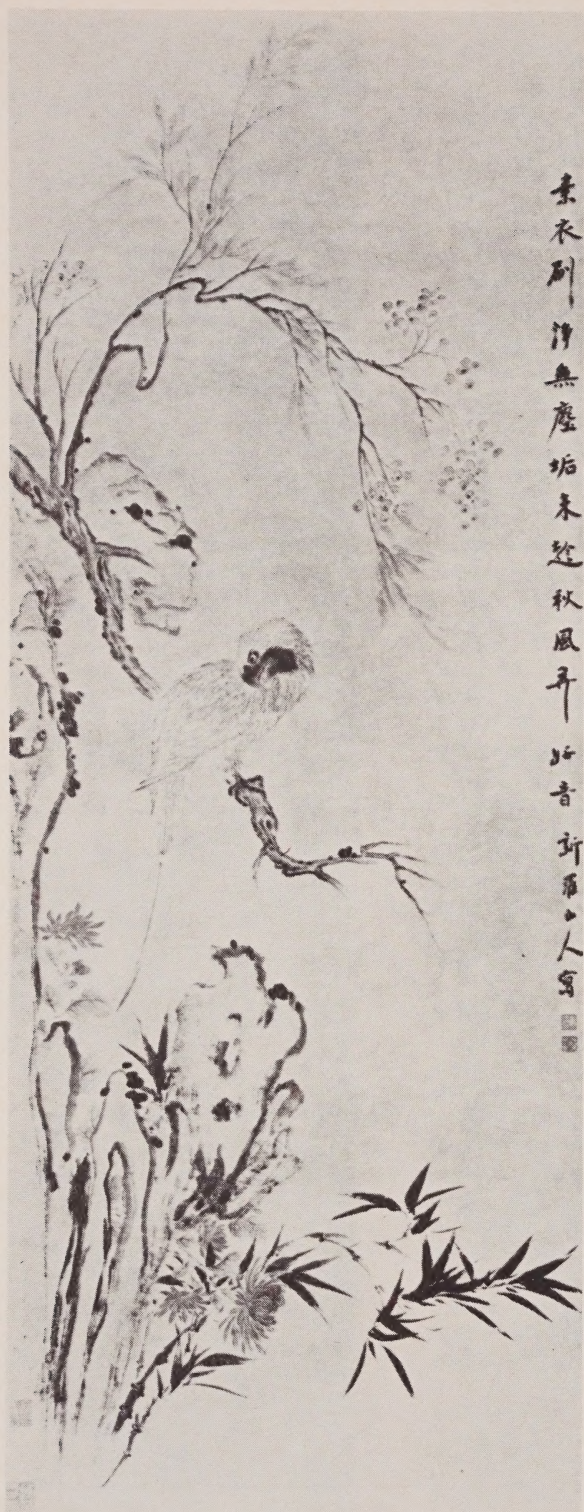 素衣刷淨無塵垢未趁秋風弄好音新羅山人寫